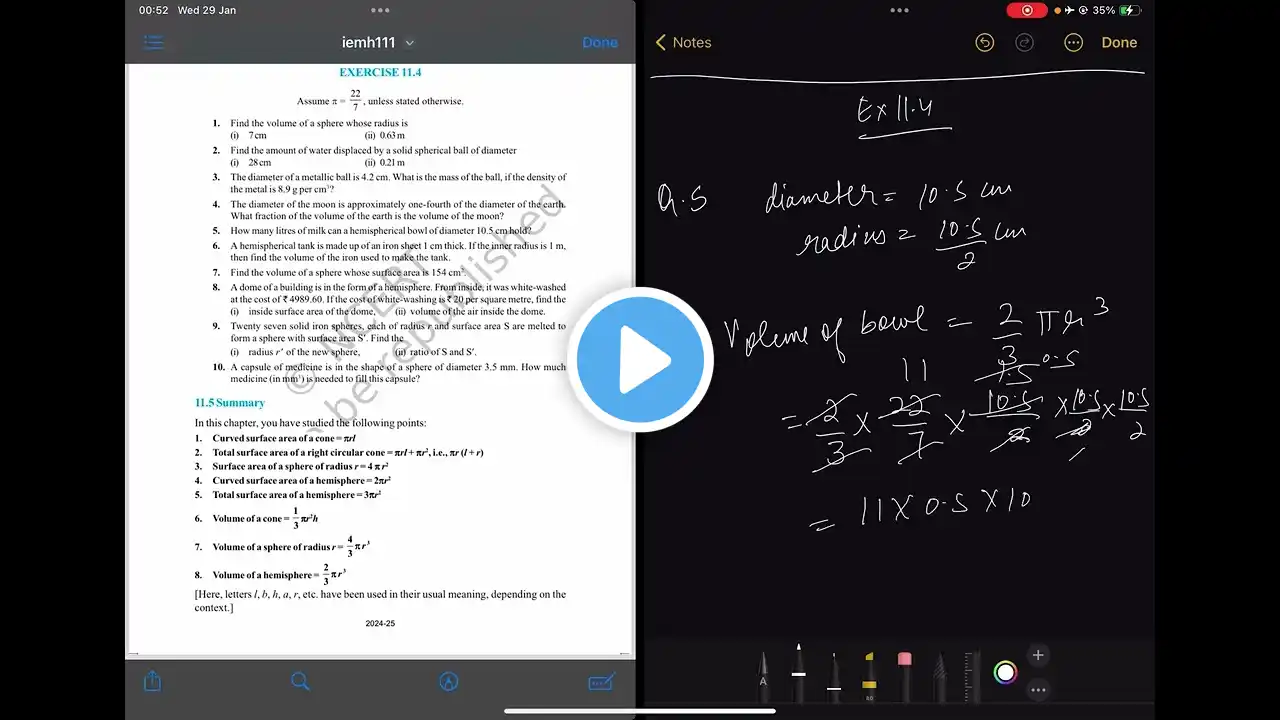 00:52 Wed 29 Jan
35%
iemh111
Done
Notes
Done
EXERCISE 11.4
Assume π = 22/7, unless stated otherwise.
1. Find the volume of a sphere whose radius is
(i) 7 cm (ii) 0.63 m
2. Find the amount of water displaced by a solid spherical ball of diameter
(i) 28 cm (ii) 0.21 m
3. The diameter of a metallic ball is 4.2 cm. What is the mass of the ball, if the density of
the metal is 8.9 g per cm³?
4. The diameter of the moon is approximately one-fourth of the diameter of the earth.
What fraction of the volume of the earth is the volume of the moon?
5. How many litres of milk can a hemispherical bowl of diameter 10.5 cm hold?
6. A hemispherical tank is made up of an iron sheet 1 cm thick. If the inner radius is 1 m,
then find the volume of the iron used to make the tank.
7. Find the volume of a sphere whose surface area is 154 cm².
8. A dome of a building is in the form of a hemisphere. From inside, it was white-washed
at the cost of ₹ 4989.60. If the cost of white-washing is ₹ 20 per square metre, find the
(i) inside surface area of the dome, (ii) volume of the air inside the dome.
9. Twenty seven solid iron spheres, each of radius r and surface area S are melted to
form a sphere with surface area S′. Find the
(i) radius r′ of the new sphere, (ii) ratio of S and S′.
10. A capsule of medicine is in the shape of a sphere of diameter 3.5 mm. How much
medicine (in mm³) is needed to fill this capsule?
© NCERT
be republished
11.5 Summary
In this chapter, you have studied the following points:
1. Curved surface area of a cone = πrl
2. Total surface area of a right circular cone = πrl + πr², i.e., πr (l + r)
3. Surface area of a sphere of radius r = 4 π r²
4. Curved surface area of a hemisphere = 2πr²
5. Total surface area of a hemisphere = 3πr²
6. Volume of a cone = 1/3 πr²h
7. Volume of a sphere of radius r = 4/3 π r³
8. Volume of a hemisphere = 2/3 π r³
[Here, letters l, b, h, a, r, etc. have been used in their usual meaning, depending on the
context.]
2024-25
Ex 11.4
Q.5 diameter = 10.5 cm
radius = 10.5/2 cm
Volume of bowl = 2/3 πr³
11 1.5 0.5
= 2/3 × 22/7 × 10.5/2 × 10.5/2 × 10.5/2
1
= 11 × 0.5 × 10
A
80